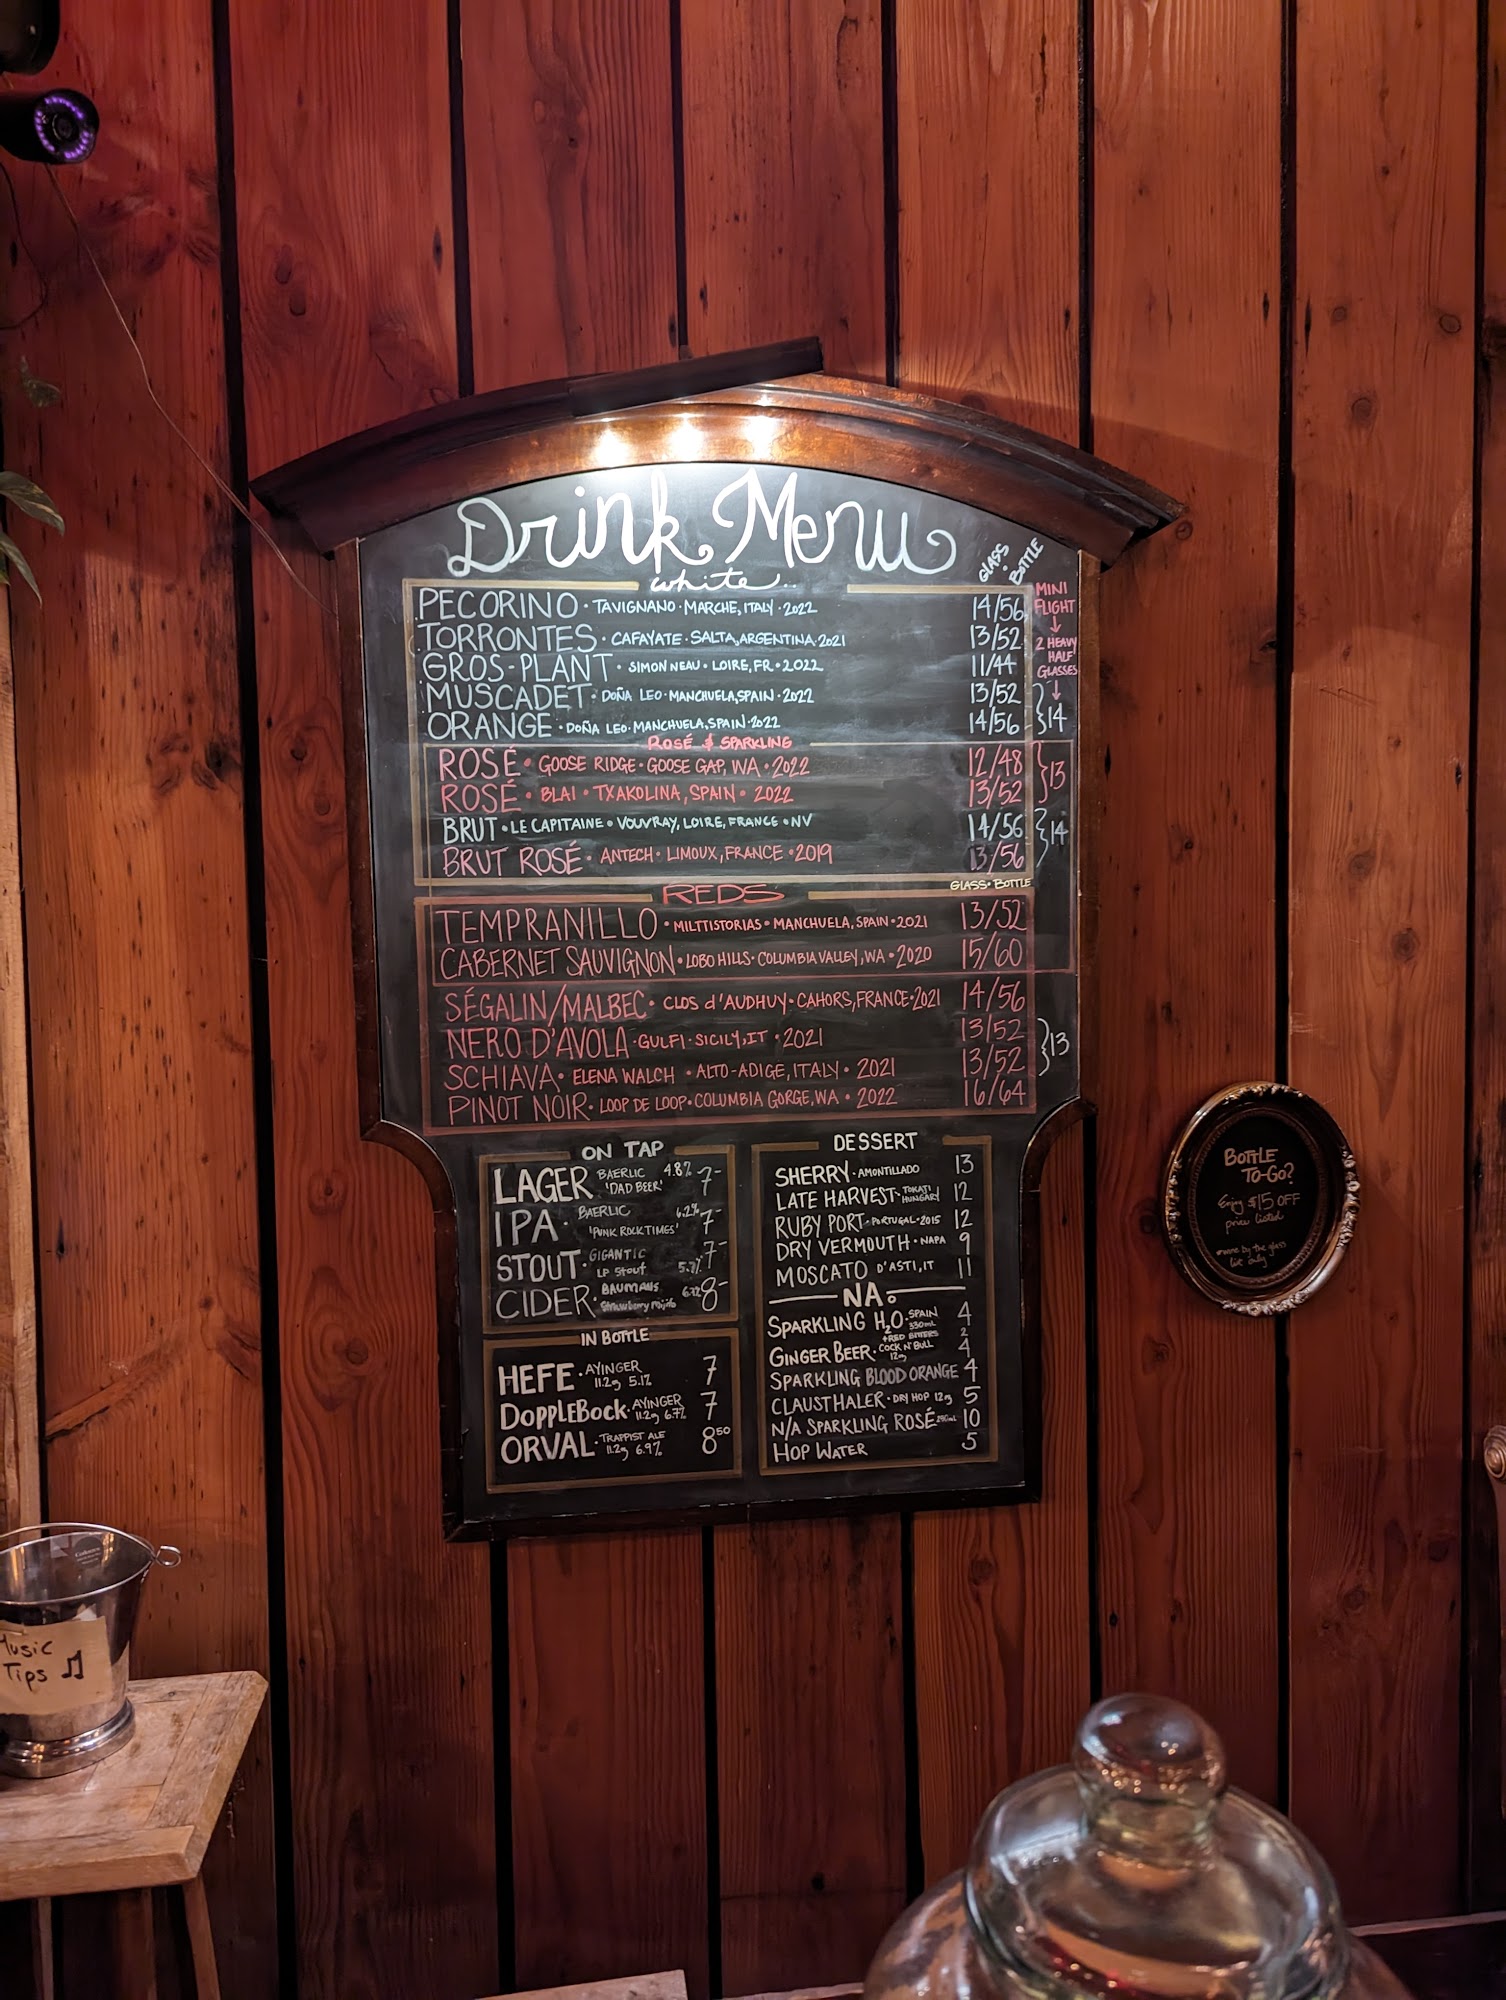 Drink Menu
GLASS • BOTTLE
white
PECORINO • TAVIGNANO • MARCHE, ITALY • 2022 14/56
TORRONTES • CAFAYATE • SALTA, ARGENTINA • 2021 13/52
GROS-PLANT • SIMONNEAU • LOIRE, FR • 2022 11/44
MUSCADET • DOÑA LEO • MANCHUELA, SPAIN • 2022 13/52
ORANGE • DOÑA LEO • MANCHUELA, SPAIN • 2022 14/56
MINI
FLIGHT
↓
2 HEAVY
HALF
GLASSES
↓
}14
ROSÉ & SPARKLING
ROSÉ • GOOSE RIDGE • GOOSE GAP, WA • 2022 12/48
ROSÉ • BLAI • TXAKOLINA, SPAIN • 2022 13/52
}13
BRUT • LE CAPITAINE • VOUVRAY, LOIRE, FRANCE • NV 14/56
BRUT ROSÉ • ANTECH • LIMOUX, FRANCE • 2019 13/56
}14
REDS
GLASS • BOTTLE
TEMPRANILLO • MILTTISTORIAS • MANCHUELA, SPAIN • 2021 13/52
CABERNET SAUVIGNON • LOBO HILLS • COLUMBIA VALLEY, WA • 2020 15/60
SÉGALIN/MALBEC • CLOS d'AUDHUY • CAHORS, FRANCE • 2021 14/56
NERO D'AVOLA • GULFI • SICILY, IT • 2021 13/52
SCHIAVA • ELENA WALCH • ALTO-ADIGE, ITALY • 2021 13/52
}13
PINOT NOIR • LOOP DE LOOP • COLUMBIA GORGE, WA • 2022 16/64
ON TAP
LAGER BAERLIC 4.8% 7-
'DAD BEER'
IPA • BAERLIC 6.2% 7-
'PUNK ROCK TIMES'
STOUT • GIGANTIC 7-
LP Stout
CIDER • BAUMANS 8-
Strawberry mojito
IN BOTTLE
HEFE • AYINGER 7
11.2oz 5.1%
DOPPLEBOCK • AYINGER 7
11.2oz 6.7%
ORVAL • TRAPPIST ALE 8⁵⁰
11.2oz 6.9%
DESSERT
SHERRY • AMONTILLADO 13
LATE HARVEST • TOKAJI HUNGARY 12
RUBY PORT • PORTUGAL • 2015 12
DRY VERMOUTH • NAPA 9
MOSCATO D'ASTI, IT 11
NA.
SPARKLING H₂O • SPAIN 330mL 4
+RED BITTERS 2
GINGER BEER • COCK N' BULL 12oz 4
SPARKLING BLOOD ORANGE 4
CLAUSTHALER • DRY HOP 12oz 5
N/A SPARKLING ROSÉ 10
HOP WATER 5
BOTTLE
TO-GO?
Enjoy $15 OFF
price listed
*wine by the glass
list only
Music
Tips ♫